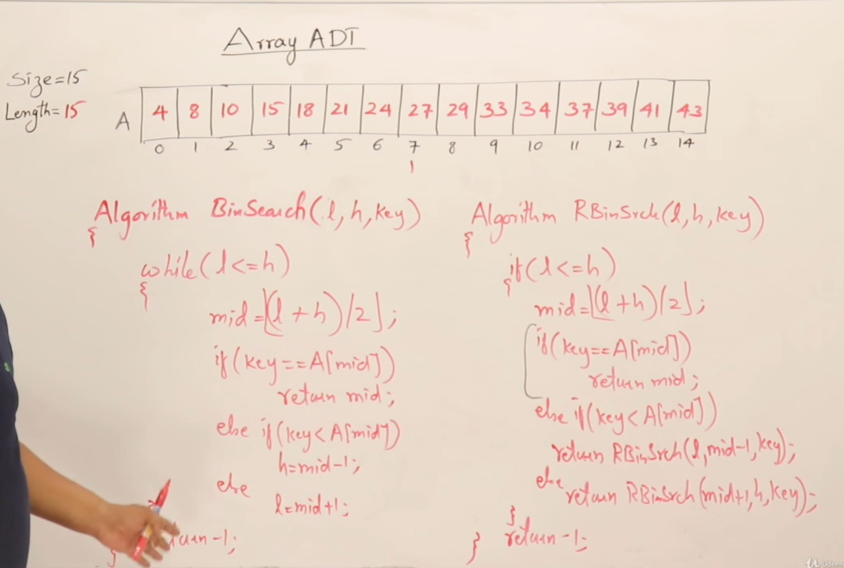 Array ADT
Size=15
Length=15
A 4 8 10 15 18 21 24 27 29 33 34 37 39 41 43
0 1 2 3 4 5 6 7 8 9 10 11 12 13 14
Algorithm BinSearch(l,h,key)
{
while(l<=h)
{
mid=⌊(l+h)/2⌋;
if(key==A[mid])
return mid;
else if(key<A[mid])
h=mid-1;
else
l=mid+1;
}
return-1;
Algorithm RBinSrch(l,h,key)
{
if(l<=h)
{
mid=⌊(l+h)/2⌋;
if(key==A[mid])
return mid;
else if(key<A[mid])
return RBinSrch(l,mid-1,key);
else
return RBinSrch(mid+1,h,key);
}
return-1;
}